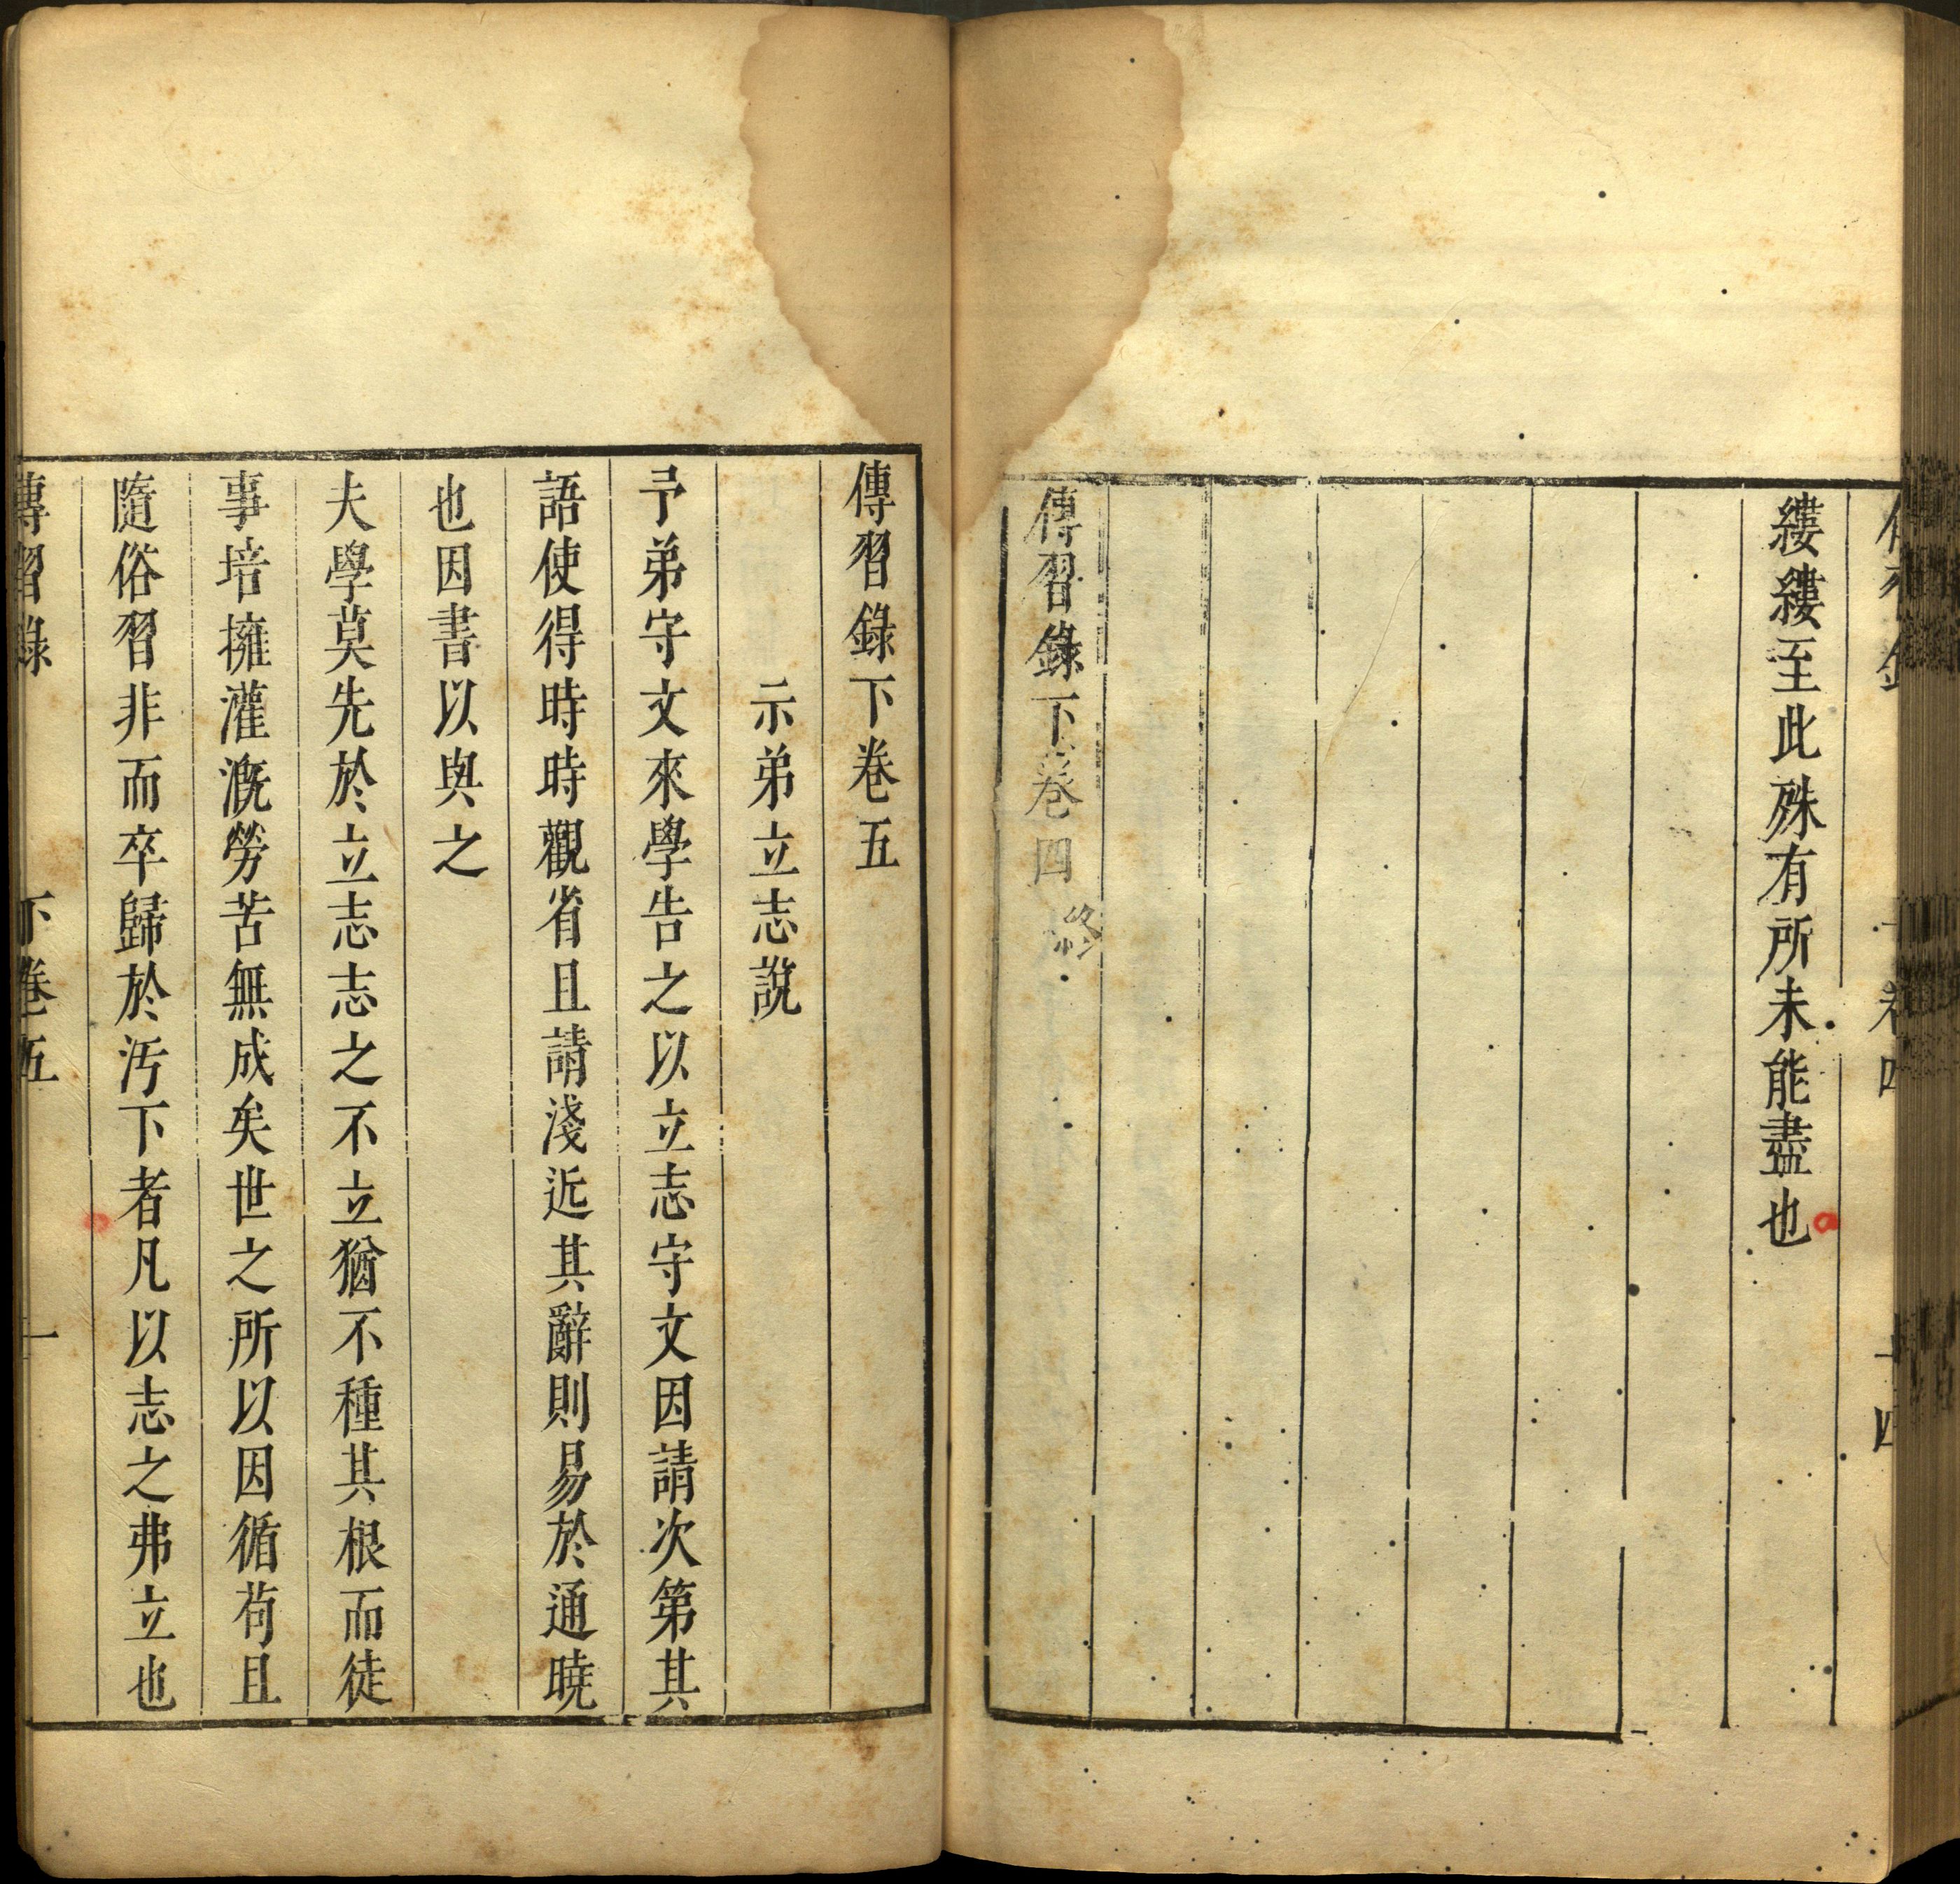 縷縷至此殊有所未能盡也
傳習錄下卷四終
傳習錄下卷五
示弟立志說
予弟守文來學告之以立志守文因請次第其
語使得時時觀省且請淺近其辭則易於通曉
也因書以與之
夫學莫先於立志志之不立猶不種其根而徒
事培擁灌溉勞苦無成矣世之所以因循苟且
隨俗習非而卒歸於汚下者凡以志之弗立也
傳習錄 下卷五 一